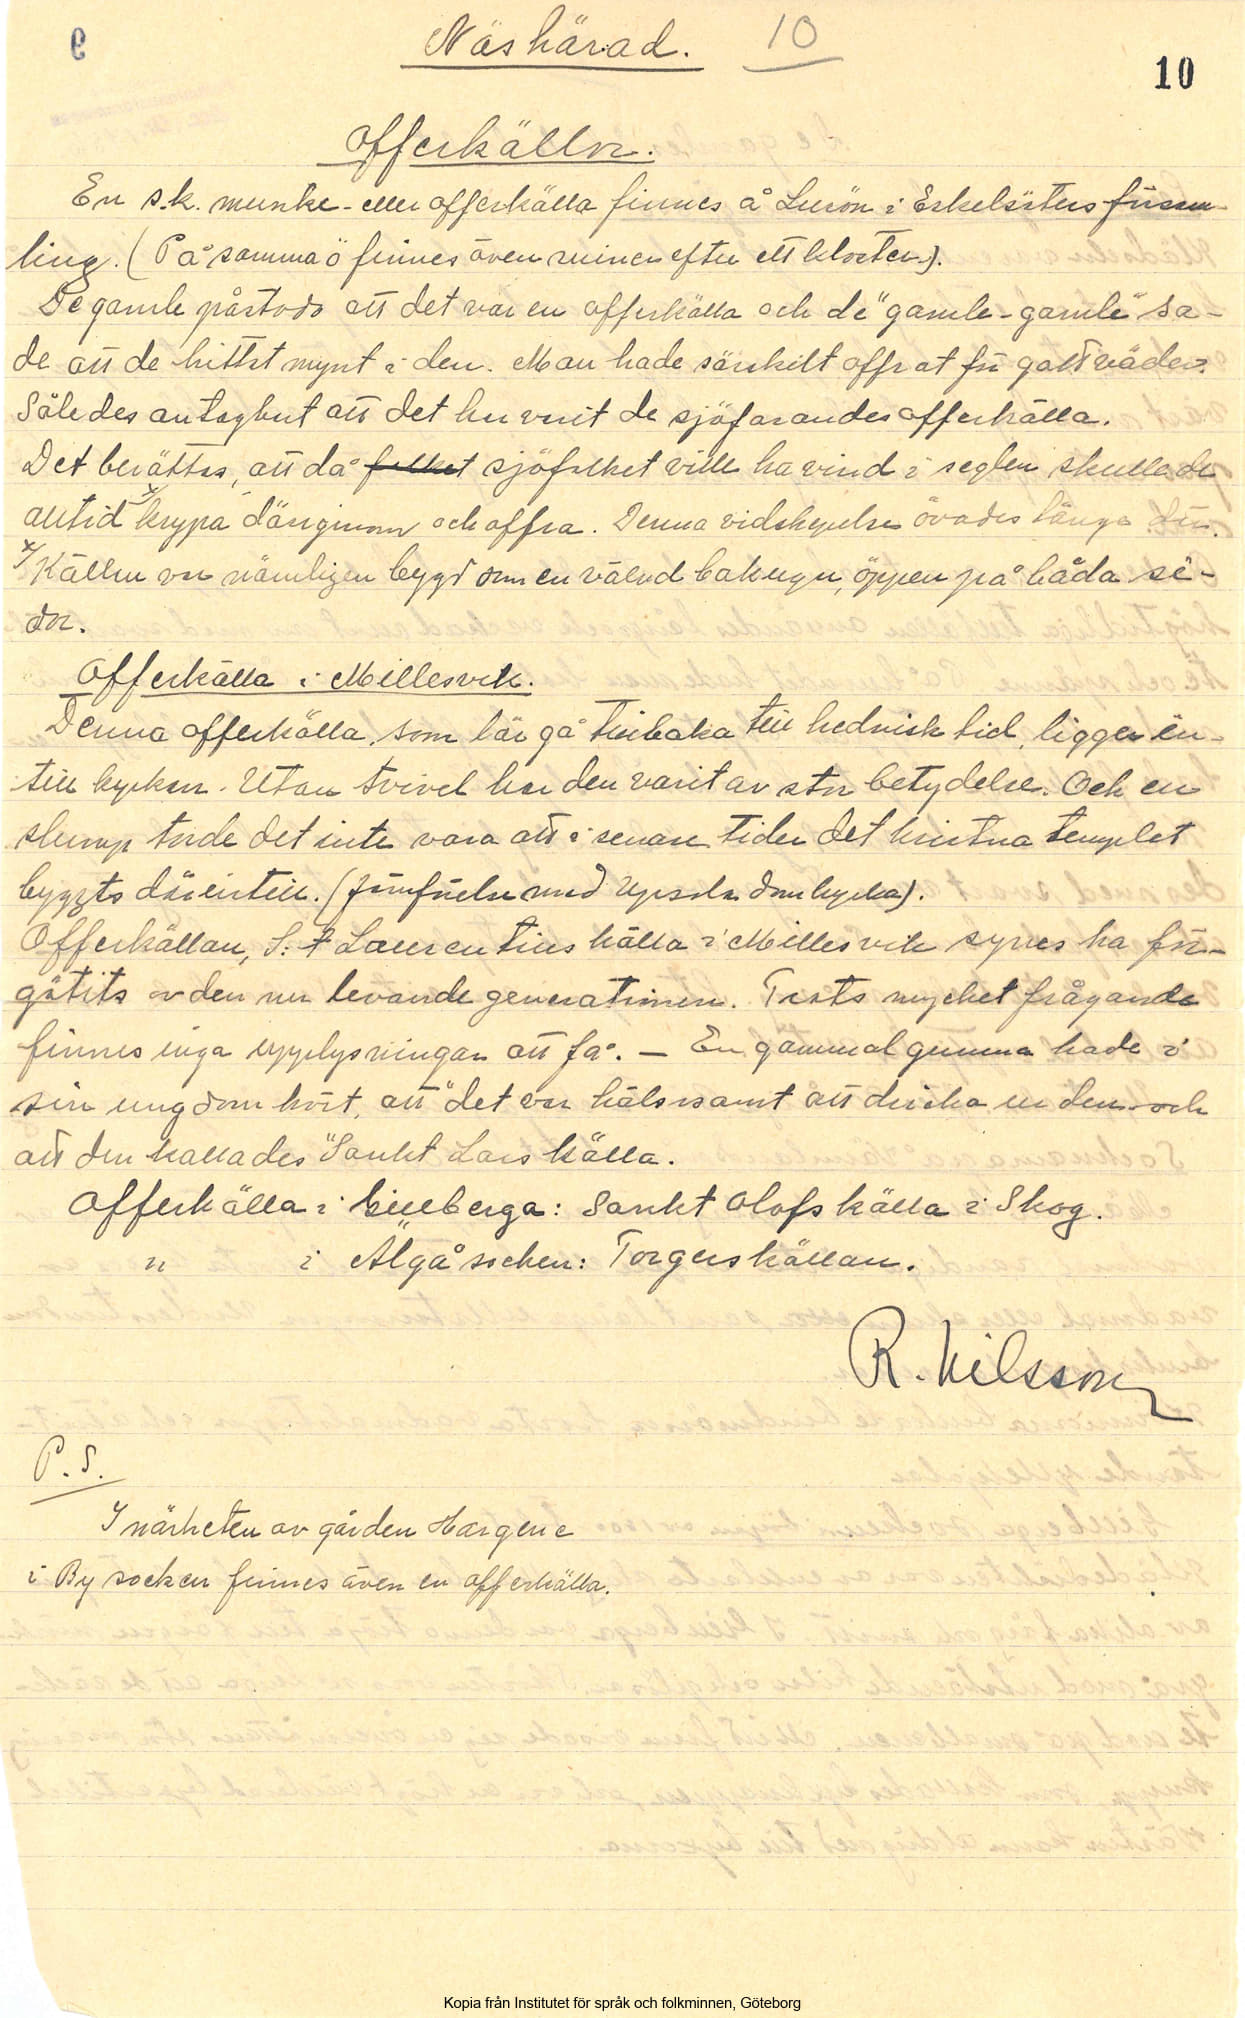 Näs härad. 10
10
Offerkällor.
En s.k. munke- eller offerkälla finnes å Lurön i Eskelsäters försam-
ling. (På samma ö finnes även ruiner efter ett kloster).
De gamle påstodo att det var en offerkälla och de "gamle-gamle" sa-
de att de hittat mynt i den. Man hade särskilt offrat för gott väder.
Således antagligt att det har varit de sjöfarandes offerkälla.
Det berättas, att då folket sjöfolket ville ha vind i seglen skulle de
alltid x/ krypa därigenom och offra. Denna vidskepelse övades länge där.
x/ Källan var nämligen byggd som en välvd bakugn, öppen på båda si-
dor.
Offerkälla i Millesvik.
Denna offerkälla, som lär gå tillbaka till hednisk tid, ligger in-
till kyrkan. Utan tvivel har den varit av stor betydelse. Och en
slump torde det inte vara att i senare tider det kristna templet
byggts därintill. (Jämförelse med Upsala domkyrka).
Offerkällan, S:t Laurentius källa i Millesvik synes ha för-
gätits av den nu levande generationen. Trots mycket frågande
finnes inga upplysningar att få. — En gammal gumma hade i
sin ungdom hört, att "det var hälsosamt att dricka ur den" och
att den kallades "Sankt Lars källa.
Offerkälla i Gillberga: Sankt Olofs källa i Skog.
" i Älgå socken: Torgerskällan.
R. Nilsson
P. S.
I närheten av gården Hargene
i By socken finnes även en offerkälla.
Kopia från Institutet för språk och folkminnen, Göteborg